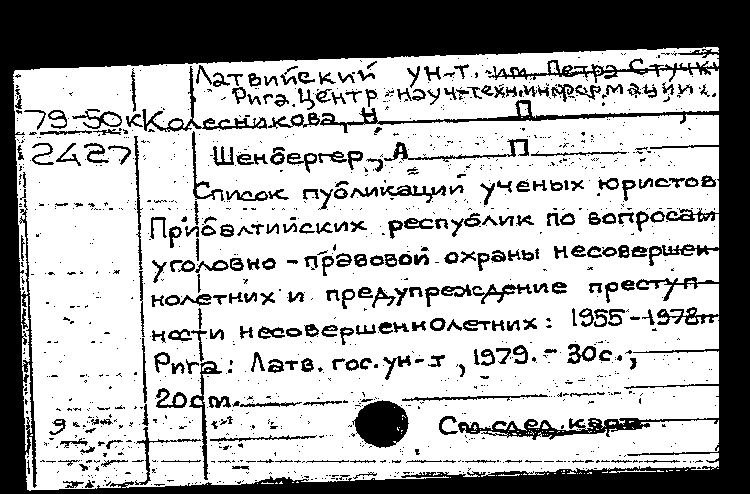 Латвийский ун-т. им. Петра Стучки
Рига. Центр науч-техн.информации.
79-50к Колесникова, Н П
2427 Шенбергер, А П
Список публикаций ученых юристов
Прибалтийских республик по вопросам
уголовно-правовой охраны несовершен-
нолетних и предупреждение преступ-
ности несовершеннолетних: 1955-1978гг
Рига: Латв. гос. ун-т, 1979. - 30с.;
20см.
9 См. след. карт.